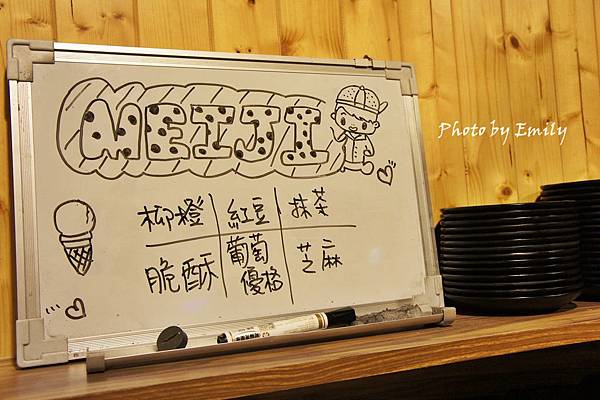 MEIJI
柳橙 紅豆 抹茶
脆酥 葡萄優格 芝麻
Photo by Emily